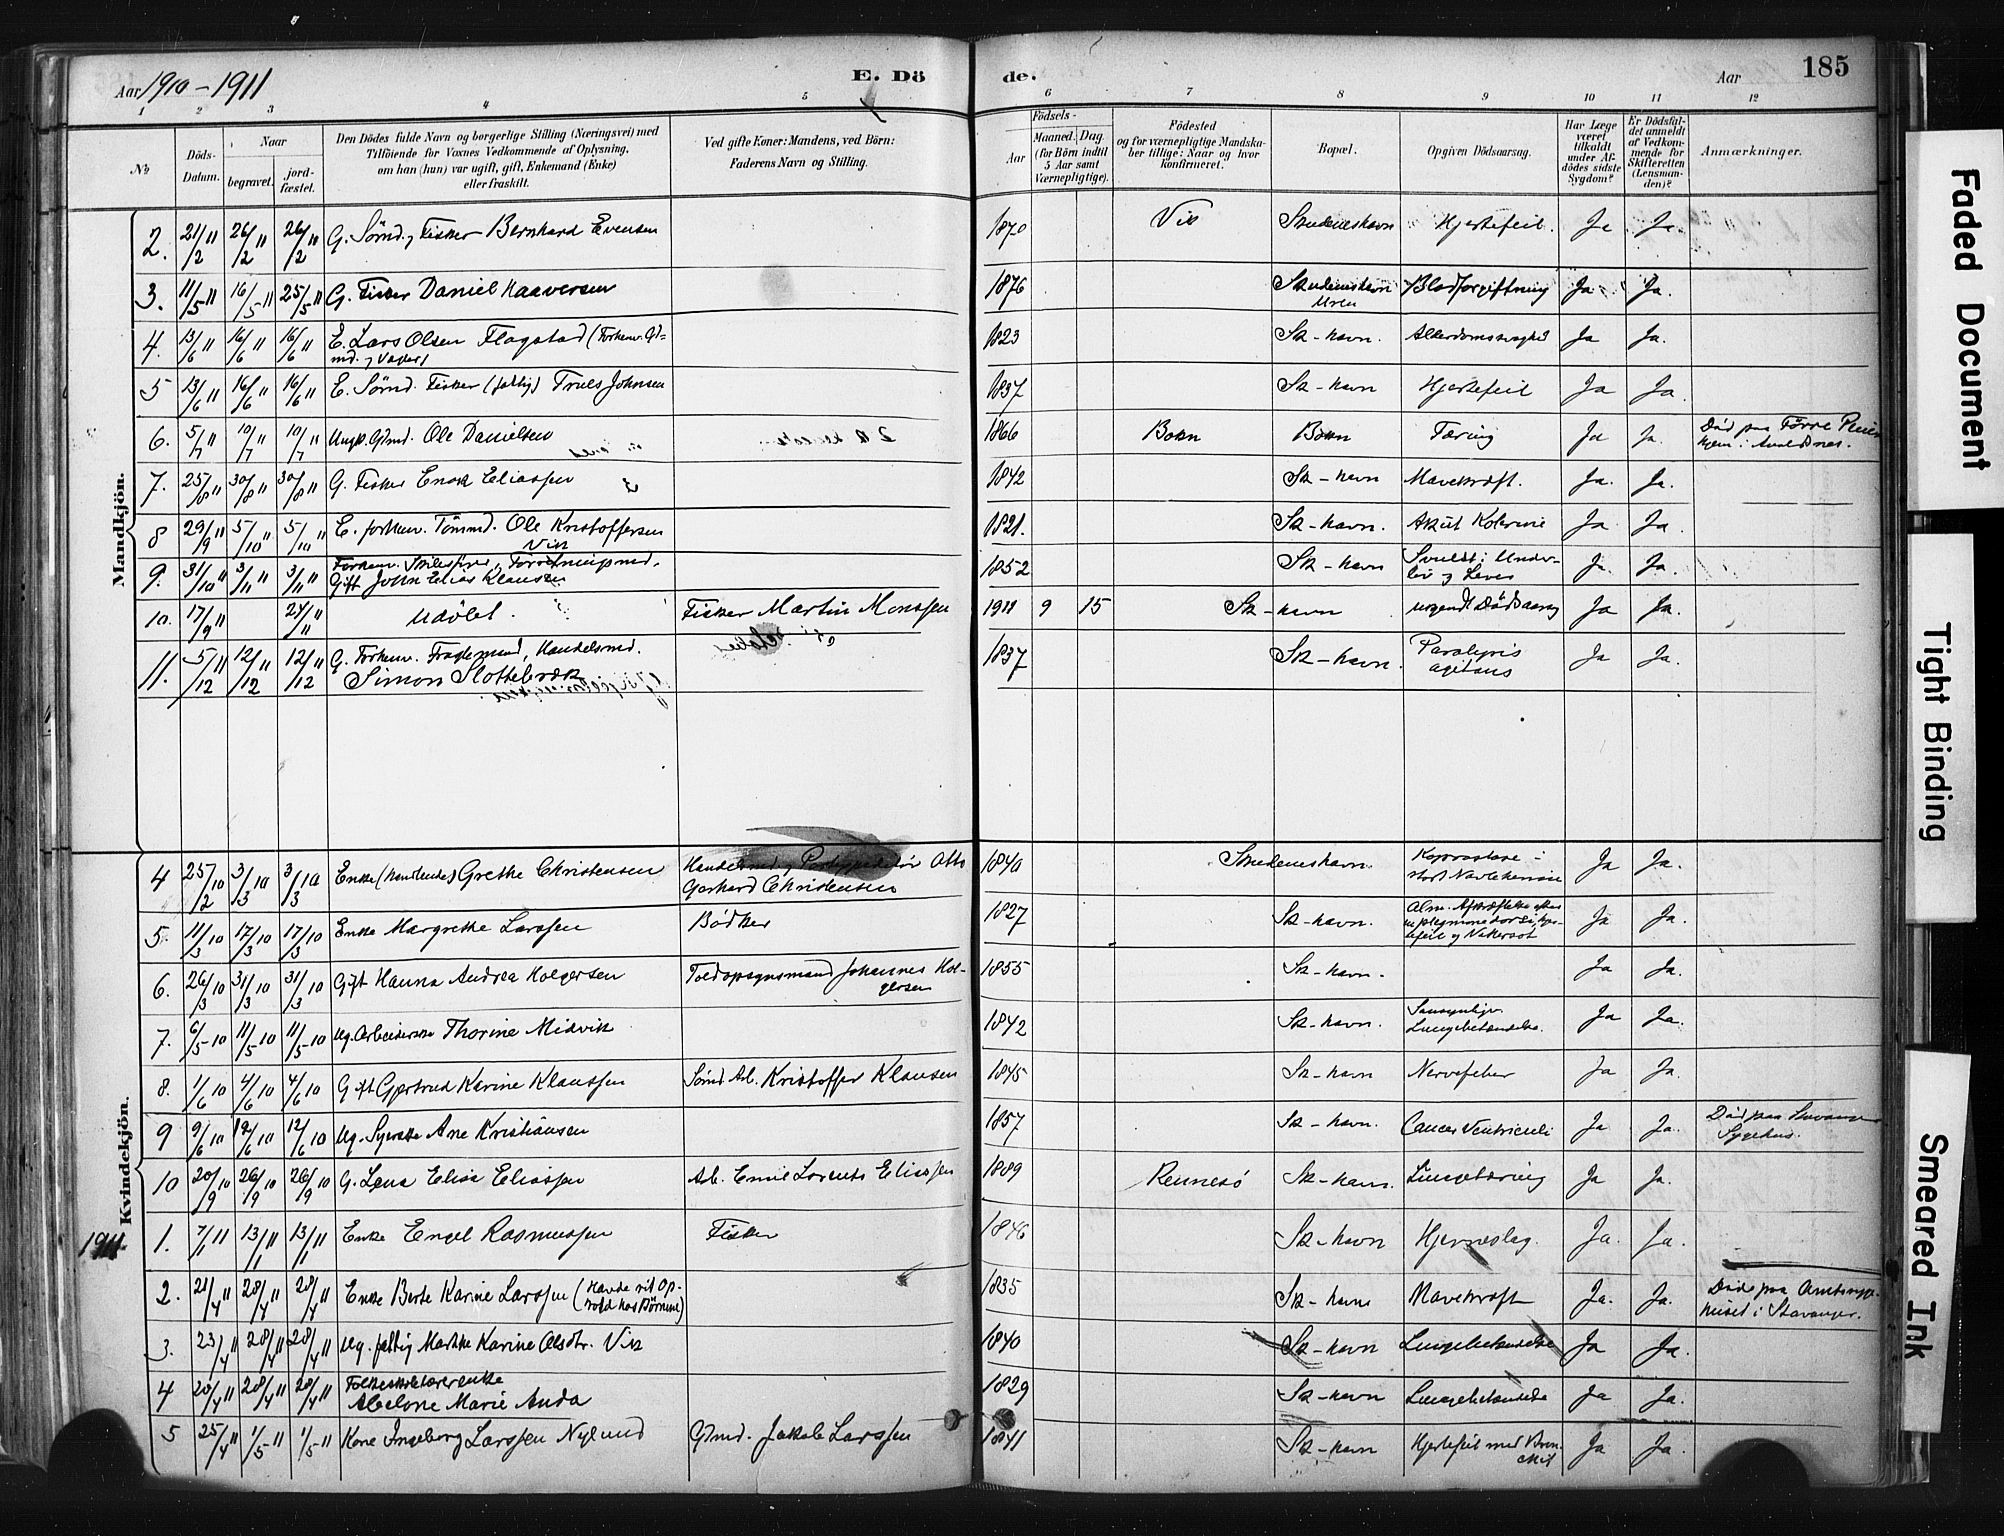 Aar 1910-1911
E. Dö
de.
Aar
185
1 2 3 4 5 6 7 8 9 10 11 12
№
Döds-Datum.
Naar
begravet.
jord-fæstet.
Den Dödes fulde Navn og borgerlige Stilling (Næringsvei) med
Tilföiende for Voxnes Vedkommende af Oplysning,
om han (hun) var ugift, gift, Enkemand (Enke)
eller fraskilt.
Ved gifte Koner: Mandens, ved Börn:
Faderens Navn og Stilling.
Födsels-
Aar
Maaned. Dag.
(for Börn indtil
5 Aar samt
Værnepligtige).
Födested
og for værnepligtige Mandska-
ber tillige: Naar og hvor
konfirmeret.
Bopæl.
Opgiven Dödsaarsag.
Har Læge
været
tilkaldt
under Af-
dödes sidste
Sygdom?
Er Dödsfal-
det anmeldt
af Vedkom-
mende for
Skifteretten
(Lensman-
den)?
Anmærkninger.
Mandkjön.
2. 21/2 11 26/2 11 26/2 11 G. Sømd. Fisker Bernhard Evensen 1870 Vik Skudeneshavn Hjertefeil. Ja Ja.
3. 11/5 11 16/5 11 25/5 11 G. Fisker Daniel Haaversen 1876 Skudeneshavn Blodforgiftning Ja Ja.
4. 13/6 11 16/6 11 16/6 11 E. Lars Olsen Flagstad (Forhenv. Gd- 1823 Sk-havn. Alderdomssvaghed Ja Ja.
5 13/6 11 16/6 11 16/6 11 E. Sømd. Fisker (fattig) Truls Johnsen 1837 Sk-havn Hjertefeil Ja Ja
6. 5/7 11 10/7 11 10/7 11 Ungk. Gdmd. Ole Danielsen 1866 Bokn Bokn Tæring Ja Ja. Død paa Førre Pleie-
hjem i Avaldsnes.
7. 25/8 11 30/8 11 30/8 11 G. Fisker Enok Eliassen 1842 Sk-havn Mavekræft. Ja. Ja.
8 29/9 11 5/10 11 5/10 11 E. forhenv. Tømmd. Ole Kristoffersen 1821. Sk-havn. Akut Kolerine Ja Ja.
Vik
9. 31/10 11 3/11 3/11 Forhenv. Skibsfører, Forretningsmd. 1852 Sk-havn Svulst i Under-
Gift John Elias Klausen liv og Lever Ja. Ja.
10. 17/9 11 24/11 11 Udøbt. Fisker Martin Monssen 1911 9 15 Sk-havn uopgivet Dødsaarsag Ja Ja.
11. 5/12 11 12/12 11 12/12 11 G. Forhenv. Fragtemand, Handelsmd. 1837 Sk-havn. Paralysis
Simon Slottebræk agitans Ja Ja
Kvindekjön.
4 25/2 10 3/3 10 3/3 10 Enke (Handlende) Grethe Christensen Handelsmd. og Postexpeditør Otto 1840 Skudeneshavn. Ja Ja.
Gerhard Christensen
5. 11/3 10 17/3 10 17/3 10 Enke Margrethe Larssen Bødker 1827 Sk-havn. Ja Ja.
6. 26/3 10 31/3 10 31/3 10 Gift Hanna Andrea Holgersen Toldopsynsmand Johannes Hol- 1855 Sk-havn. Ja Ja.
gersen
7. 6/5 10 11/5 10 11/5 10 Ug. Arbeiderske Thorine Midvik 1842 Sk-havn. Sansynligv.
Lungebetændelse. Ja Ja.
8. 1/6 10 4/6 10 4/6 10 Gift Gjertrud Karine Klaussen Sømd. Arb. Kristoffer Klausen 1845 Sk-havn Nervefeber Ja Ja.
9 9/6 10 12/6 10 12/6 10 Ug. Syerske Ane Kristiansen 1857 Sk-havn. Cancer Ventriculi Ja Ja. Død paa Stavanger
Sygehus.
10 20/9 10 26/9 10 26/9 10 G. Lena Elisa Eliassen Arb. Emil Lorents Eliassen 1889 Rennesö Sk-havn. Lungetæring Ja Ja.
1911. 1. 7/1 11 13/1 11 13/1 11 Enke Engel Rasmussen Fisker 1846 Sk-havn Hjerneslag. Ja. Ja.
2. 21/4 11 28/4 11 28/4 11 Enke Berte Karine Larssen (Havde sit Op- 1835 Sk-havn Mavekræft Ja. Ja. Døde paa Amtssyge-
hold hos Børnene) huset i Stavanger.
3. 23/4 11 28/4 11 28/4 11 Ug. fattig Marthe Karine Olsdtr. Vik 1840 Sk-havn Lungebetændelse Ja Ja.
4 20/4 11 28/4 11 28/4 11 Folkeskolelærerenke
Abelone Marie Anda 1829 Sk-havn Lungebetændelse Ja Ja.
5 25/4 11 1/5 11 1/5 11 Kone Ingeborg Larssen Nylund Gdmd. Jakob Larssen 1841 Sk-havn Hjertefeil med Bron-
chit Ja Ja.
Faded Document
Tight Binding
Smeared Ink